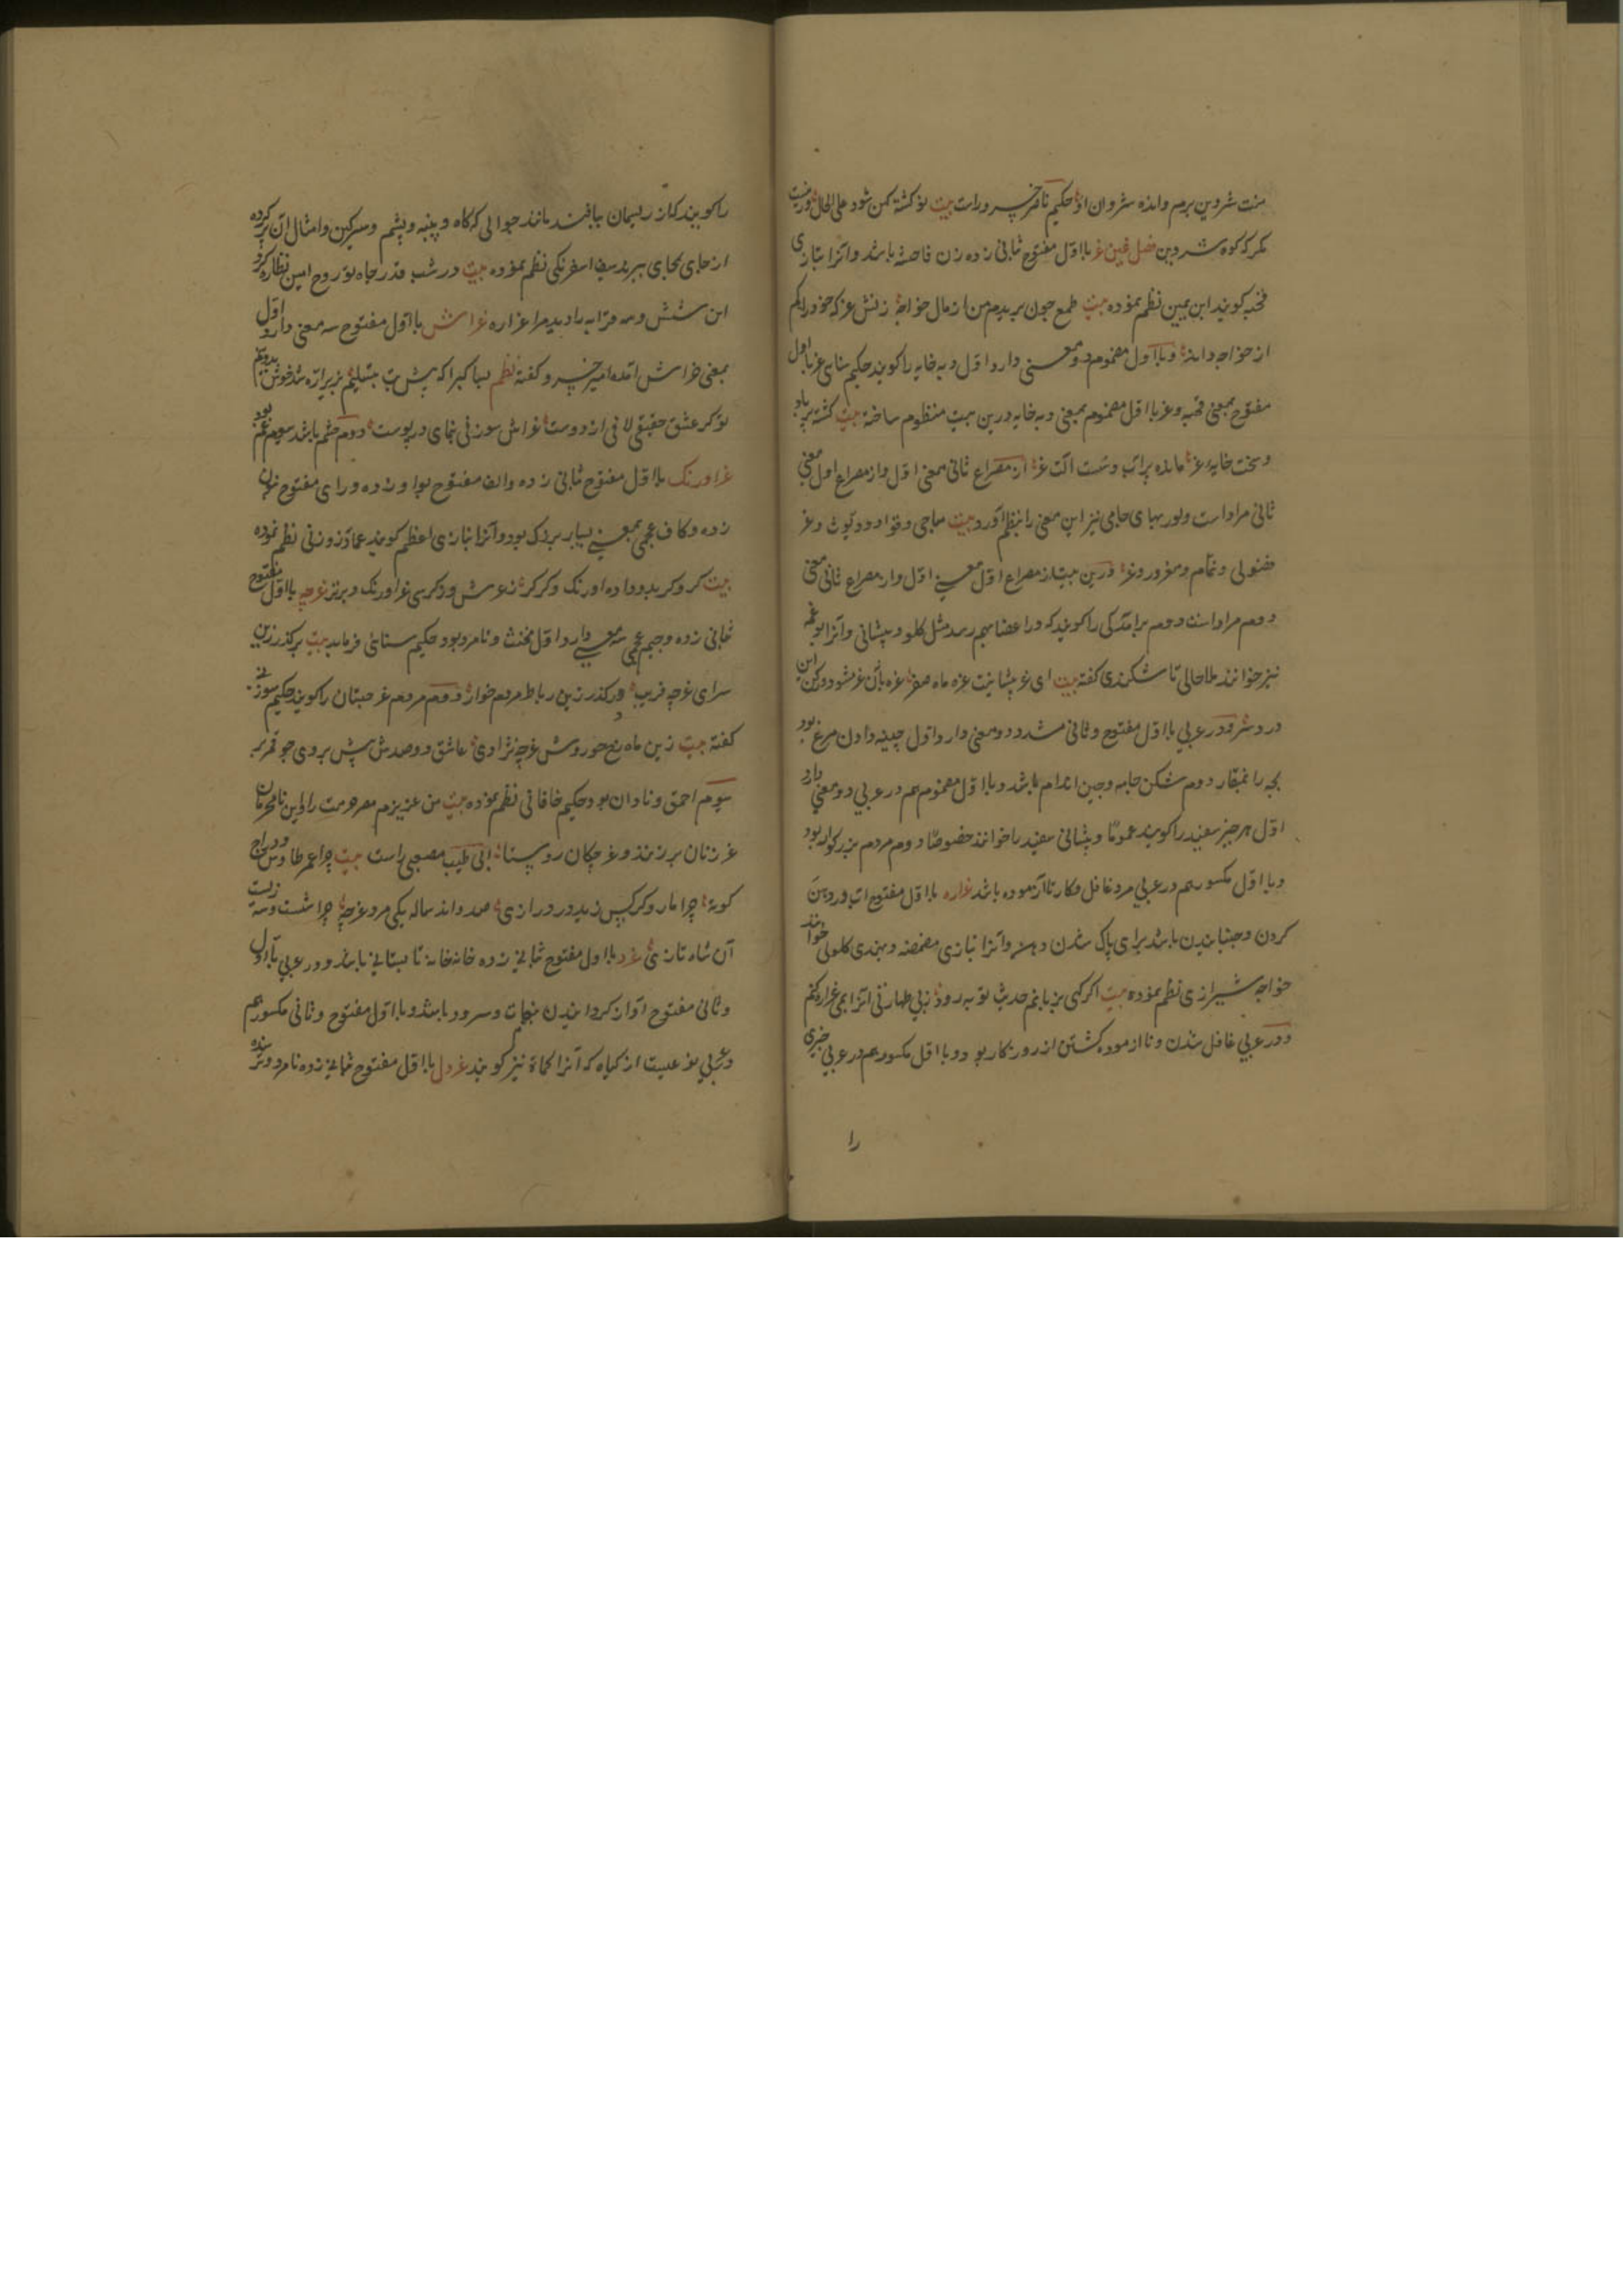 منت شروین بر مردم وانده شروان او حکیم ناصر خسرو راست بیت تو کشته کمن شود علی الحال ورنیست
مکر که کوه شروین فصل غین غر با اوّل مفتوح ثانی زده زن فاحشه باشد و آنرا بتازی
قحبه کویند ابن یمین نظم نموده بیت طمع چون بریدم من از مال خواجه زنش غر که خود را کم
از خواجه داند و با اول مضموم دو معنی دارد اول دبه خایه را کویند حکیم سنای غر با اول
مفتوح بمعنی قحبه و غر با اول مضموم بمعنی دبه خایه درین بیت منظوم ساخته بیت کشته پر باد
و سخت خایه غر مانده بر آب و سست آلت غر از مصراع ثانی معنی اول و از مصراع اول معنی
ثانی مراد است و پور بهای جامی نیز این معنی را بنظم آورد بیت ساجی و قواد و دیوث و غر
فضولی و نمام و مغرور و غر درین بیت از مصراع اول معنی اول و از مصراع ثانی معنی
دوم مراد است دوم برآمدکی را کویند که در اعضا بهم رسد مثل کلو و پیشانی و آنرا بوغمه
نیز خوانند ملا حالی تاشکندی کفته بیت ای غر پیشانیت غره ماه صفر غره بآن غر مشو دور کن این
درد سر و در عربی با اول مفتوح و ثانی مشدد دو معنی دارد اول چینه دادن مرغ بود
بچه را بمنقار دوم شکن جامه و چین اندام باشد و با اول مضموم هم در عربی دو معنی دارد
اول هر چیز سفید را کویند عموما و پیشانی سفید را خوانند خصوصا دوم مردم بزرکوار بود
و با اول مکسور هم در عربی مرد غافل و کار ناآزموده باشد غراره با اول مفتوح آب در دهن
کردن و جنبانیدن باشد برای پاک شدن دهن و آنرا بتازی مضمضه و بهندی کلولی خوانند
خواجه شیرازی نظم نموده بیت اکر کهی بزبانم حدیث توبه رود ز بی طهارتی آنرا بمی غراره کنم
و در عربی غافل شدن و ناآزموده کشتن از روزکار بود و با اول مکسور هم در عربی چیزی
را
را کویند که از ریسمان بافند مانند جوالی که کاه و پنبه و پشم و سرکین و امثال آن پر کرده
از جای بجای برند سیف اسفرنکی نظم نموده بیت در شب قدر جاه تو روح امین نظاره کرد
این شش و سه قرابه را دید مرا غراره غراش با اول مفتوح سه معنی دارد اول
بمعنی خراش آمده امیر خسرو کفته نظم بسا کبرا که پیش بت بتسلیم
تو کر عشق حقیقی لافی از دوست غراش سوزنی بنمای در پوست دوم خشم باشد سیوم غم بود
غراورنک با اول مفتوح ثانی زده والف مفتوح بواو زده و رای مفتوح بنون
زده و کاف عجمی بمعنی بسیار بزرک بود و آنرا بتازی اعظم کویند عماد زوزنی نظم نموده
بیت کر و کر بدو داده اورنک و کر کر ز عرش و ز کرسی غراورنک و برتر غرچه با اول مفتوح
ثانی زده و جیم عجمی سه معنی دارد اول مخنث و نامرد بود حکیم سنائی فرماید بیت برکذر زین
سرای غرچه فریب درکذر زین رباط مردم خوار دوم مردم غرجستان را کویند حکیم سوزنی
کفته بیت زین ماه رخ حور وش غرچه نژادی عاشق دو صدش پیش بروی چو قمر بر
سیوم احمق و نادان بود حکیم خاقانی نظم نموده بیت من عزیزم مصر حرمت را و این نامحرمان
غر زنان برزنند و غرچکان روستا ابی طیب مصعبی راست بیت چرا عمر طاوس و دراج
کوته چرا مار و کرکس زید در درازی صد و اند ساله یکی مرد غرچه چرا شست و سه زیست
آن شاه تازی غرد با اول مفتوح ثانی زده خانه خانه تابستانی باشد و در عربی با اول
و ثانی مفتوح آواز کردانیدن بنجات و سرود باشد و با اول مفتوح و ثانی مکسور هم
در عربی نوعیست از کیاه که آنرا کماة نیز کویند غردل با اول مفتوح ثانی زده نامرد و ترسنده